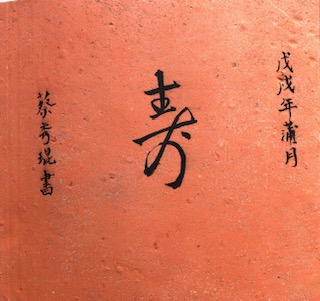 戊戌年蒲月
寿
蔡秀琨書